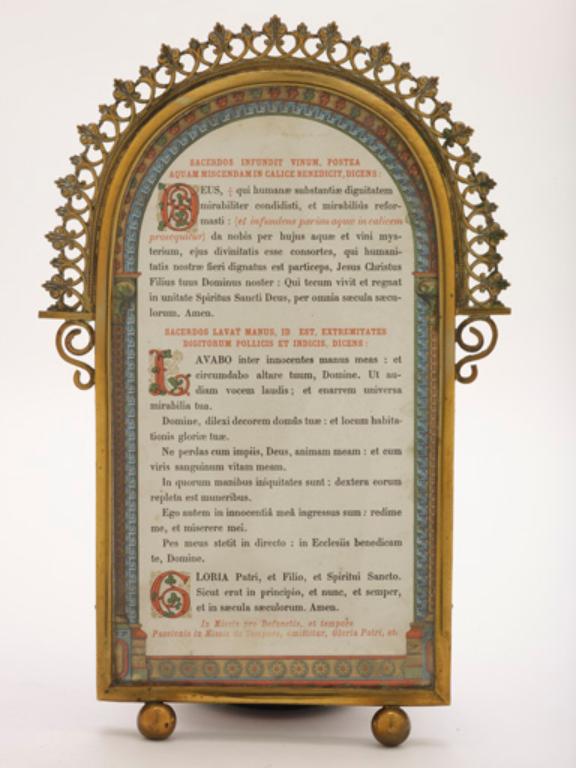 SACERDOS INFUNDIT VINUM, POSTEA
AQUAM MISCENDAM IN CALICE BENEDICIT, DICENS :
DEUS, ✠ qui humanæ substantiæ dignitatem
mirabiliter condidisti, et mirabiliùs refor-
masti : (et infundens parùm aquæ in calicem
prosequitur) da nobis per hujus aquæ et vini mys-
terium, ejus divinitatis esse consortes, qui humani-
tatis nostræ fieri dignatus est particeps, Jesus Christus
Filius tuus Dominus noster : Qui tecum vivit et regnat
in unitate Spiritus Sancti Deus, per omnia sæcula sæcu-
lorum. Amen.
SACERDOS LAVAT MANUS, ID EST, EXTREMITATES
DIGITORUM POLLICIS ET INDICIS, DICENS :
LAVABO inter innocentes manus meas : et
circumdabo altare tuum, Domine. Ut au-
diam vocem laudis ; et enarrem universa
mirabilia tua.
Domine, dilexi decorem domûs tuæ : et locum habita-
tionis gloriæ tuæ.
Ne perdas cum impiis, Deus, animam meam : et cum
viris sanguinum vitam meam.
In quorum manibus iniquitates sunt : dextera eorum
repleta est muneribus.
Ego autem in innocentiâ meâ ingressus sum : redime
me, et miserere mei.
Pes meus stetit in directo : in Ecclesiis benedicam
te, Domine.
GLORIA Patri, et Filio, et Spiritui Sancto.
Sicut erat in principio, et nunc, et semper,
et in sæcula sæculorum. Amen.
In Missis pro Defunctis, et tempore
Passionis in Missis de Tempore, omittitur, Gloria Patri, etc